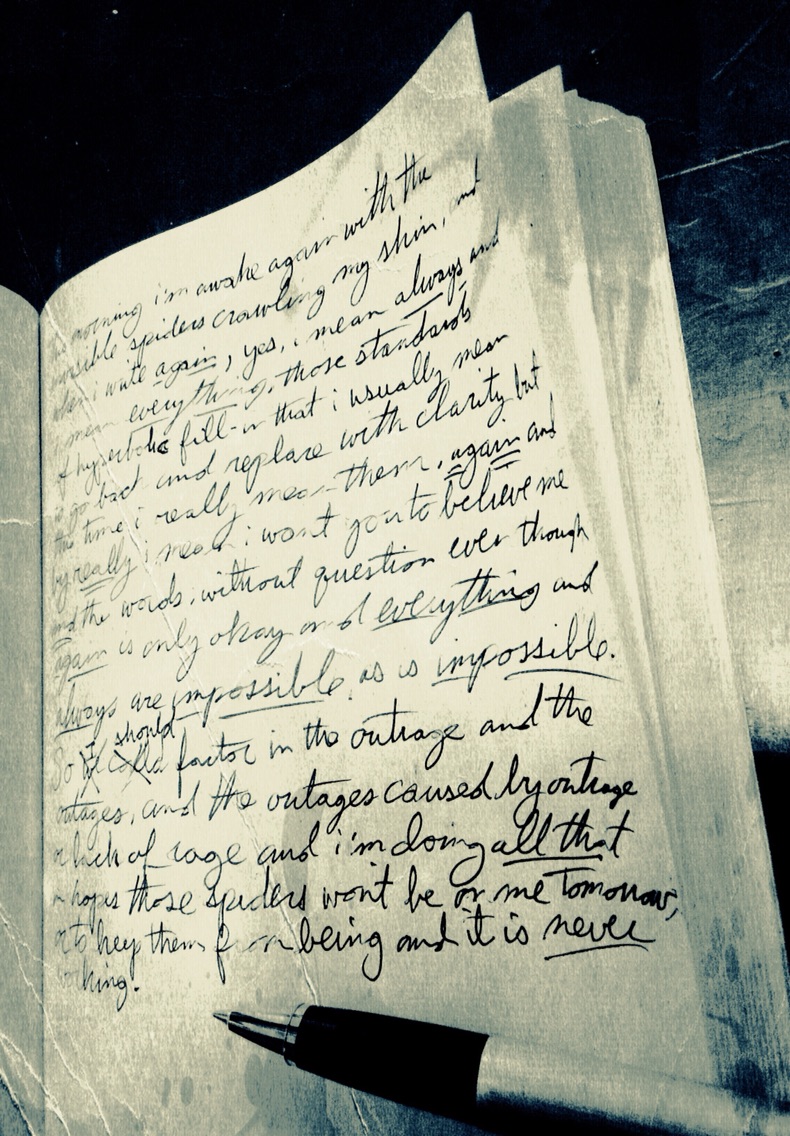 morning i'm awake again with the
invisible spiders crawling my skin, and
when i write again, yes, i mean always and
i mean everything, those standards
of hyperbolic fill-in that i usually mean
to go back and replace with clarity but
this time i really mean them, again and
by really i mean i want you to believe me
and the words, without question even though
again is only okay and everything and
always are impossible, as is impossible.
should
So factor in the outrage and the
outages, and the outages caused by outrage
or lack of rage and i'm doing all that
in hopes those spiders won't be on me tomorrow,
or to keep them from being and it is never
working.